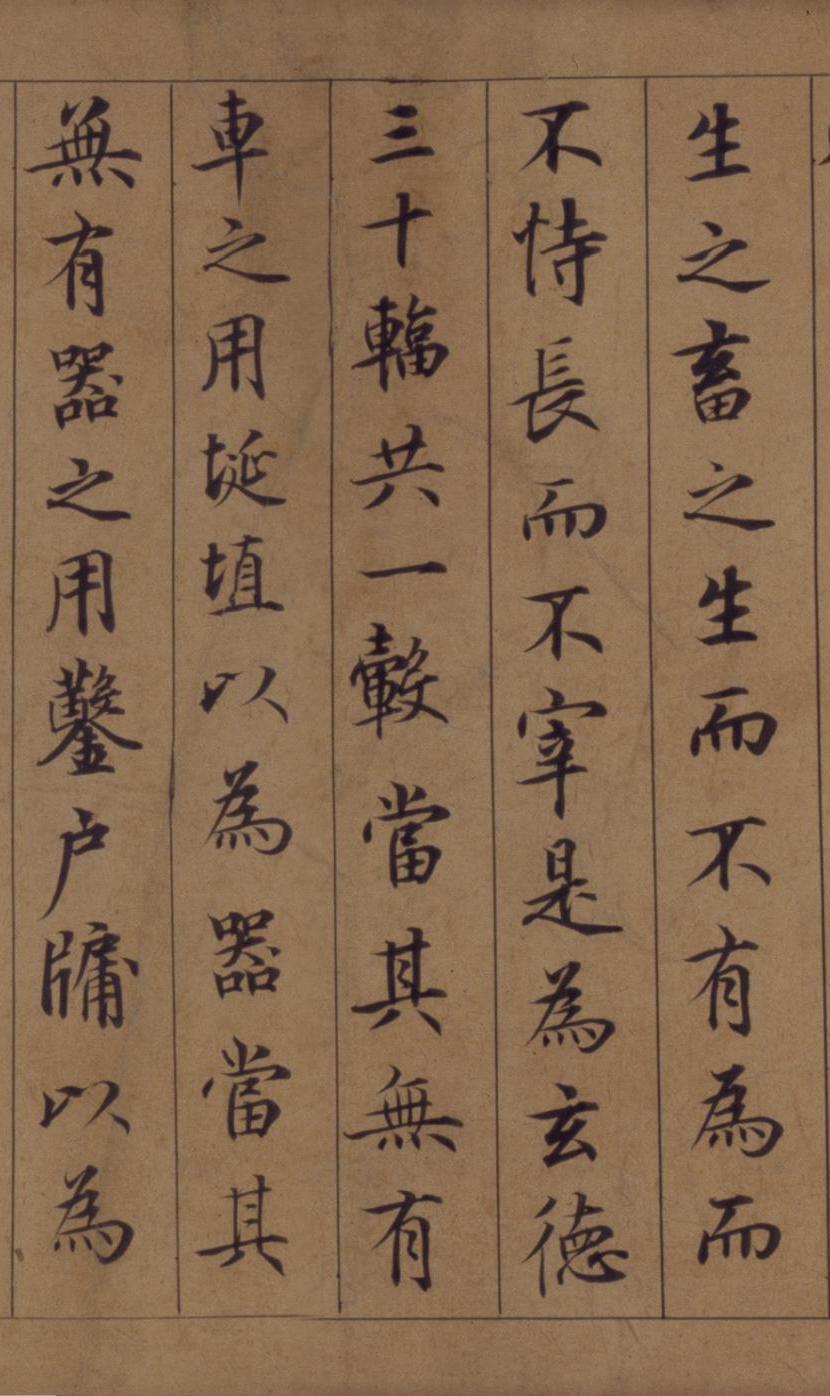 生之畜之生而不有為而
不恃長而不宰是為玄德
三十輻共一轂當其無有
車之用埏埴以為器當其
無有器之用鑿戶牖以為